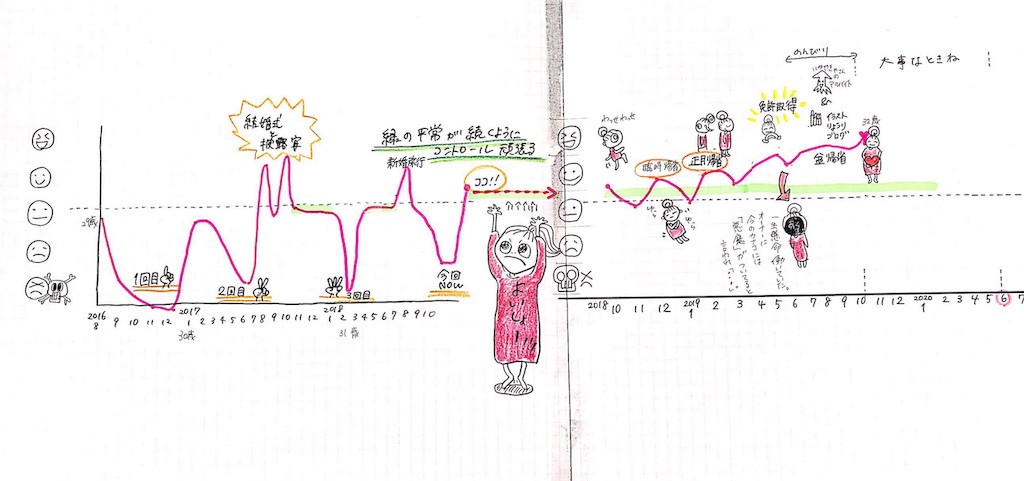 結婚式
と
披露宴
緑の平常が続くように
コントロール頑張る
新婚旅行
ココ!!
29歳
1回目
2回目
3回目
今回
NOW
2016
8 9 10 11 12
2017
1 2 3 4 5 6 7 8 9 10 11 12
2018
1 2 3 4 5 6 7 8 9 10
30歳
31歳
おいしょー!!!
のんびり
大事なときね
アルバイト
&
イラスト
りょうり
ブログ
免許取得
32歳
わっせわっせ
臨時帰省
正月帰省
金帰省
一生懸命働いていた。
オーナーに
今のカナコには
「悪魔」がついてると
言われ
2018
10 11 12
2019
1 2 3 4 5 6 7 8 9 10 11 12
2020
1 2 3 4 5 6 7